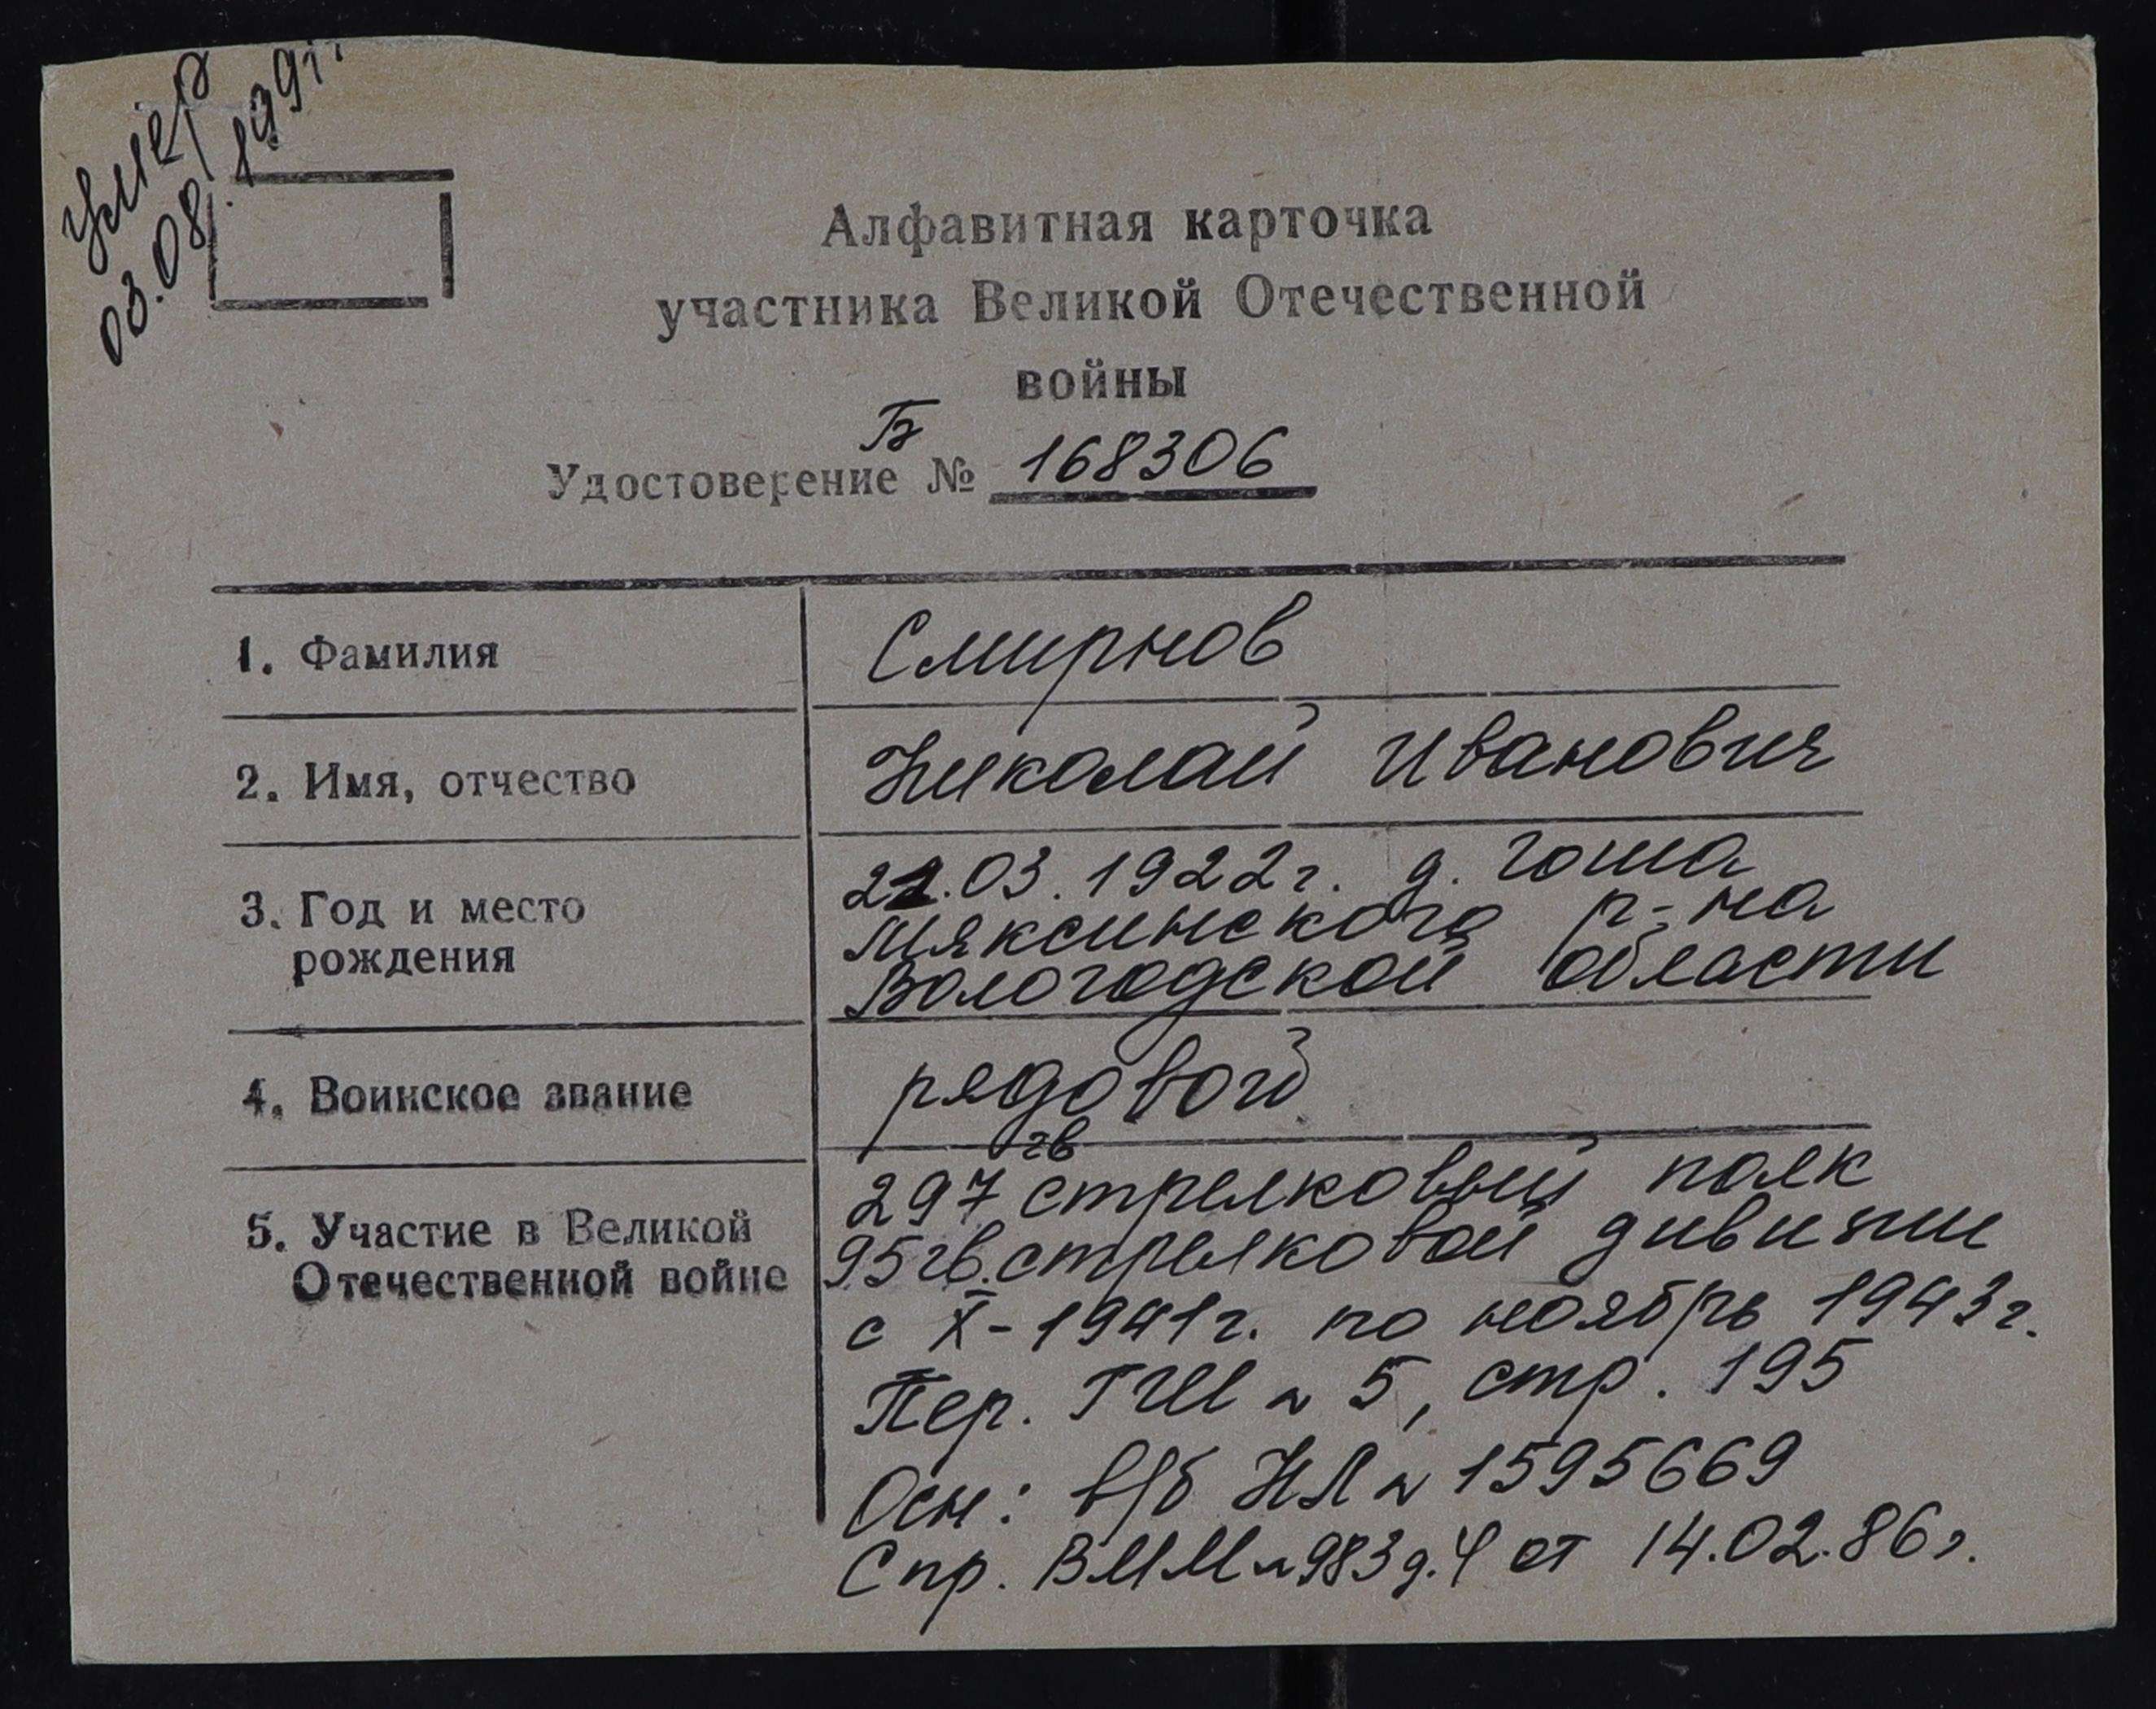 умер
03.08.1991г.
Алфавитная карточка
участника Великой Отечественной
войны
Б
Удостоверение № 168306
1. Фамилия
Смирнов
2. Имя, отчество
Николай Иванович
3. Год и место
рождения
22.03.1922г. д. Гоша
Мяксинского р-на
Вологодской области
4. Воинское звание
рядовой
5. Участие в Великой
Отечественной войне
гв
297 стрелковый полк
95 гв. стрелковой дивизии
с X-1941г. по ноябрь 1943г.
Пер. ГШ № 5, стр. 195
Осн: в/б НЛ № 1595669
Спр. ВММ № 983 д.4 от 14.02.86г.